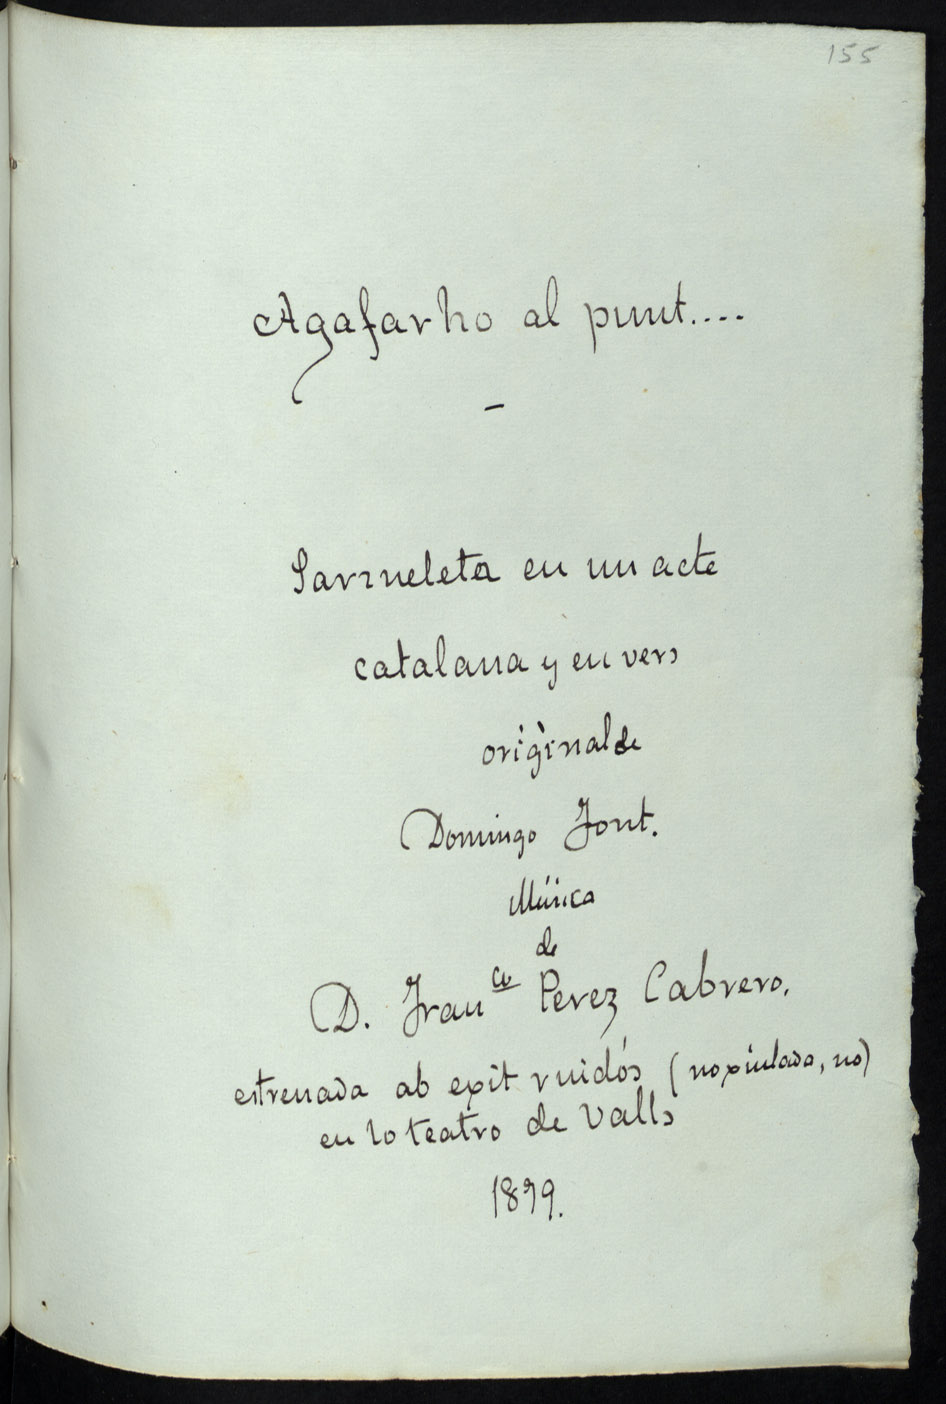 155
Agafarho al punt....
-
Sarzueleta en un acte
catalana y en vers
original de
Domingo Font.
Música
de
D. Franco Perez Cabrero.
estrenada ab exit ruidós (no xiulada, no)
en lo teatro de Valls
1879.